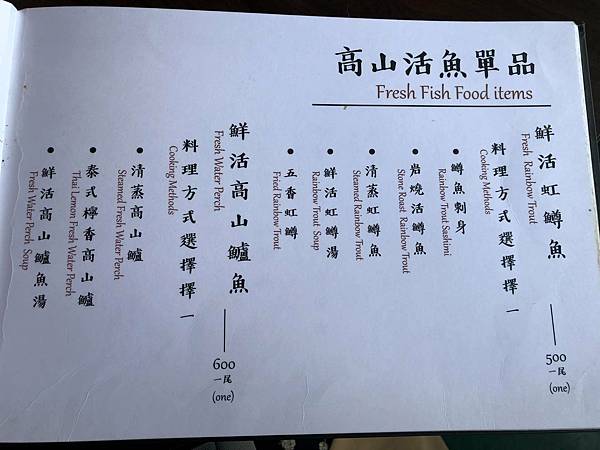 高山活魚單品
Fresh Fish Food items
鮮活虹鱒魚 500 一尾 (one)
Fresh Rainbow Trout
料理方式選擇擇一
Cooking Methods
• 鱒魚刺身
Rainbow Trout Sasshimi
• 岩燒活鱒魚
Stone Roast Rainbow Trout
• 清蒸虹鱒魚
Steamed Rainbow Trout
• 鮮活虹鱒湯
Rainbow Trout Soup
• 五香虹鱒
Fried Rainbow Trout
鮮活高山鱸魚 600 一尾 (one)
Fresh Water Perch
料理方式選擇擇一
Cooking Methods
• 清蒸高山鱸
Steamed Fresh Water Perch
• 泰式檸香高山鱸
Thai Lemon Fresh Water Perch
• 鮮活高山鱸魚湯
Fresh Water Perch Soup